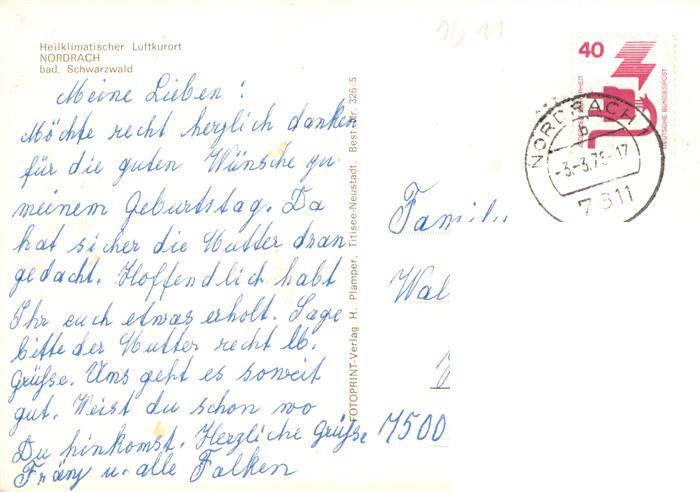 Heilklimatischer Luftkurort
NORDRACH
bad. Schwarzwald
Meine Lieben!
Möchte recht herzlich danken
für die guten Wünsche zu
meinem Geburtstag. Da
hat sicher die Mutter dran
gedacht. Hoffendlich habt
Ihr euch etwas erholt. Sage
bitte der Mutter recht lb.
Grüße. Uns geht es soweit
gut. Weist du schon wo
Du hinkomst. Herzliche Grüße
Fränz u. alle Falken
FOTOPRINT-Verlag H. Plamper, Titisee-Neustadt, Best.-Nr. 326/5
40
DEUTSCHE BUNDESPOST
NORDRACH
b
-3.-3.76-17
7611
Famil
Wal
7500